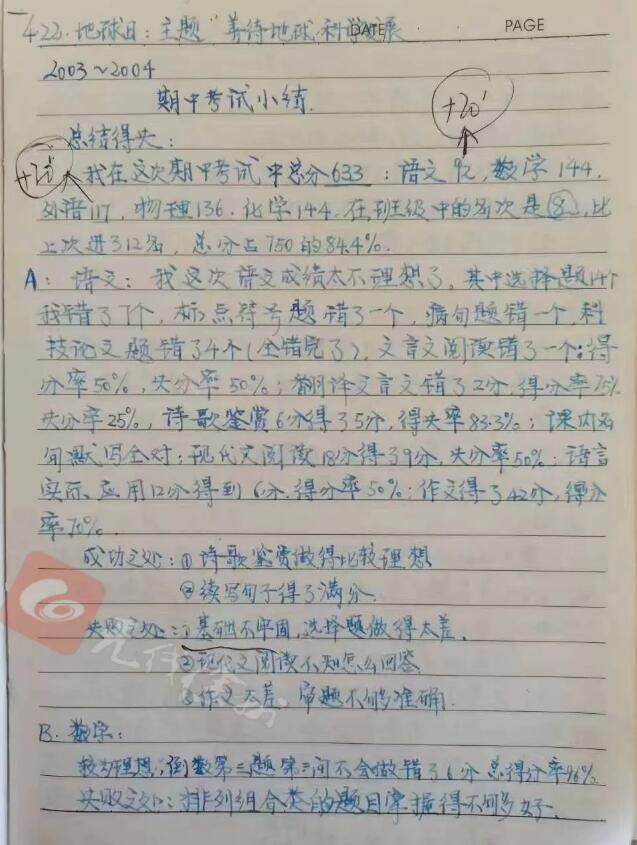 4.22.地球日:主题"善待地球,科学发展 DATE PAGE
2003~2004
期中考试小结.
+20'
总结得失:
+20'
我在这次期中考试中总分633:语文92,数学144,
外语117,物理136.化学144.在班级中的名次是8,比
上次进312名,总分占750的84.4%.
A:语文:我这次语文成绩太不理想了,其中选择题14个
我错了7个,标点符号题错了一个,病句题错一个,科
技论文题错了4个(全错完了),文言文阅读错了一个;得
分率50%,失分率50%;翻译文言文错了2分,得分率75%
失分率25%,诗歌鉴赏6分得了5分,得失率83.3%;课内名
句默写全对;现代文阅读18分得了9分,失分率50%;语言
实际应用12分得到6分.得分率50%;作文得了42分,得分
率70%.
成功之处:①诗歌鉴赏做得比较理想
②续写句子得了满分.
失败之处:①基础不牢固,选择题做得太差.
②现代文阅读不知怎么回答
③作文太差,审题不够准确.
B.数学:
较为理想,倒数第二题第三问不会做错了6分总得分率96%.
失败之处:排列组合类的题目掌握得不够好.